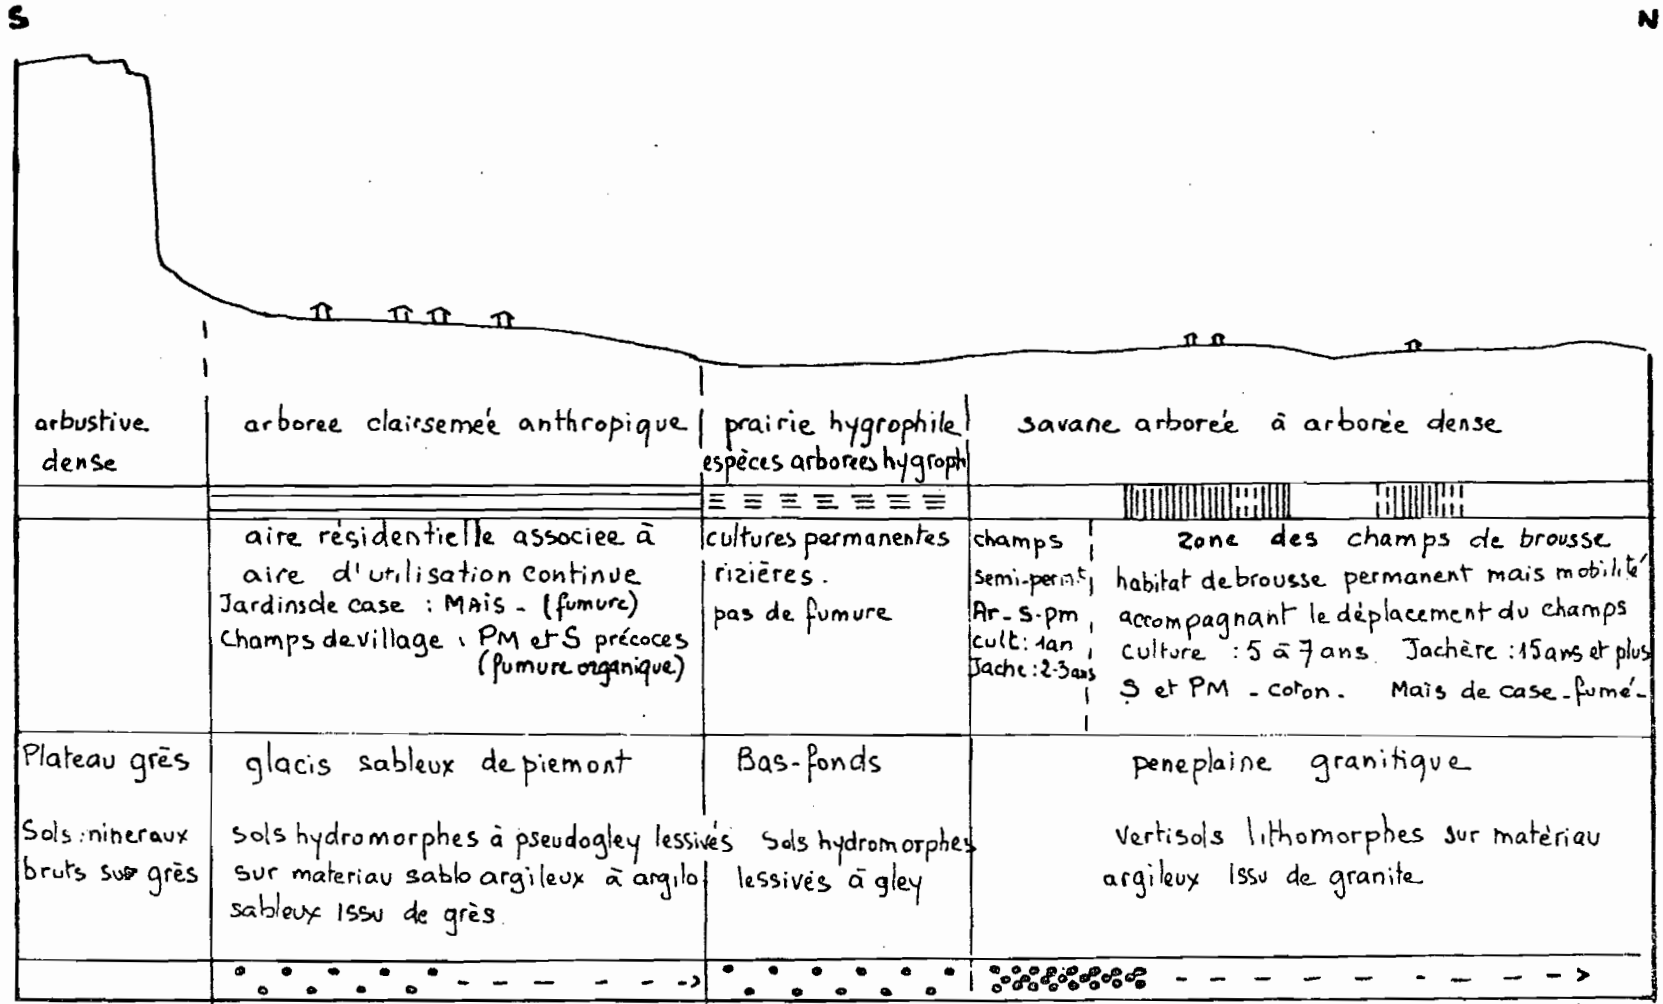 S
N
arbustive
dense
arboree clairsemée anthropique
prairie hygrophile
espèces arborees hygroph
savane arborée à arborée dense
aire résidentielle associee à
aire d'utilisation continue
Jardins de case : MAÏS - (fumure)
Champs de village : PM et S précoces
(fumure organique)
cultures permanentes
rizières.
pas de fumure
champs
semi-permt
Ar - S - pm
cult : 1an
Jache : 2-3ans
zone des champs de brousse
habitat de brousse permanent mais mobilité
accompagnant le déplacement du champs
culture : 5 à 7 ans. Jachère : 15 ans et plus
S et PM - coton - Maïs de case - fumé -
Plateau grès
glacis sableux de piemont
Bas-fonds
peneplaine granitique
Sols : nineraux
bruts sur grès
Sols hydromorphes à pseudogley lessivés
sur materiau sablo argileux à argilo
sableux issu de grès.
Sols hydromorphes
lessivés à gley
Vertisols lithomorphes sur matériau
argileux issu de granite